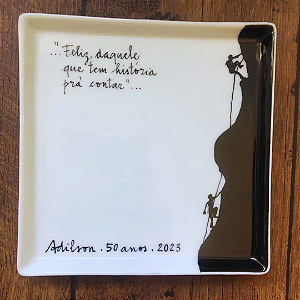 ..."Feliz daquele
que tem história
prá contar"...
Adilson . 50 anos . 2023